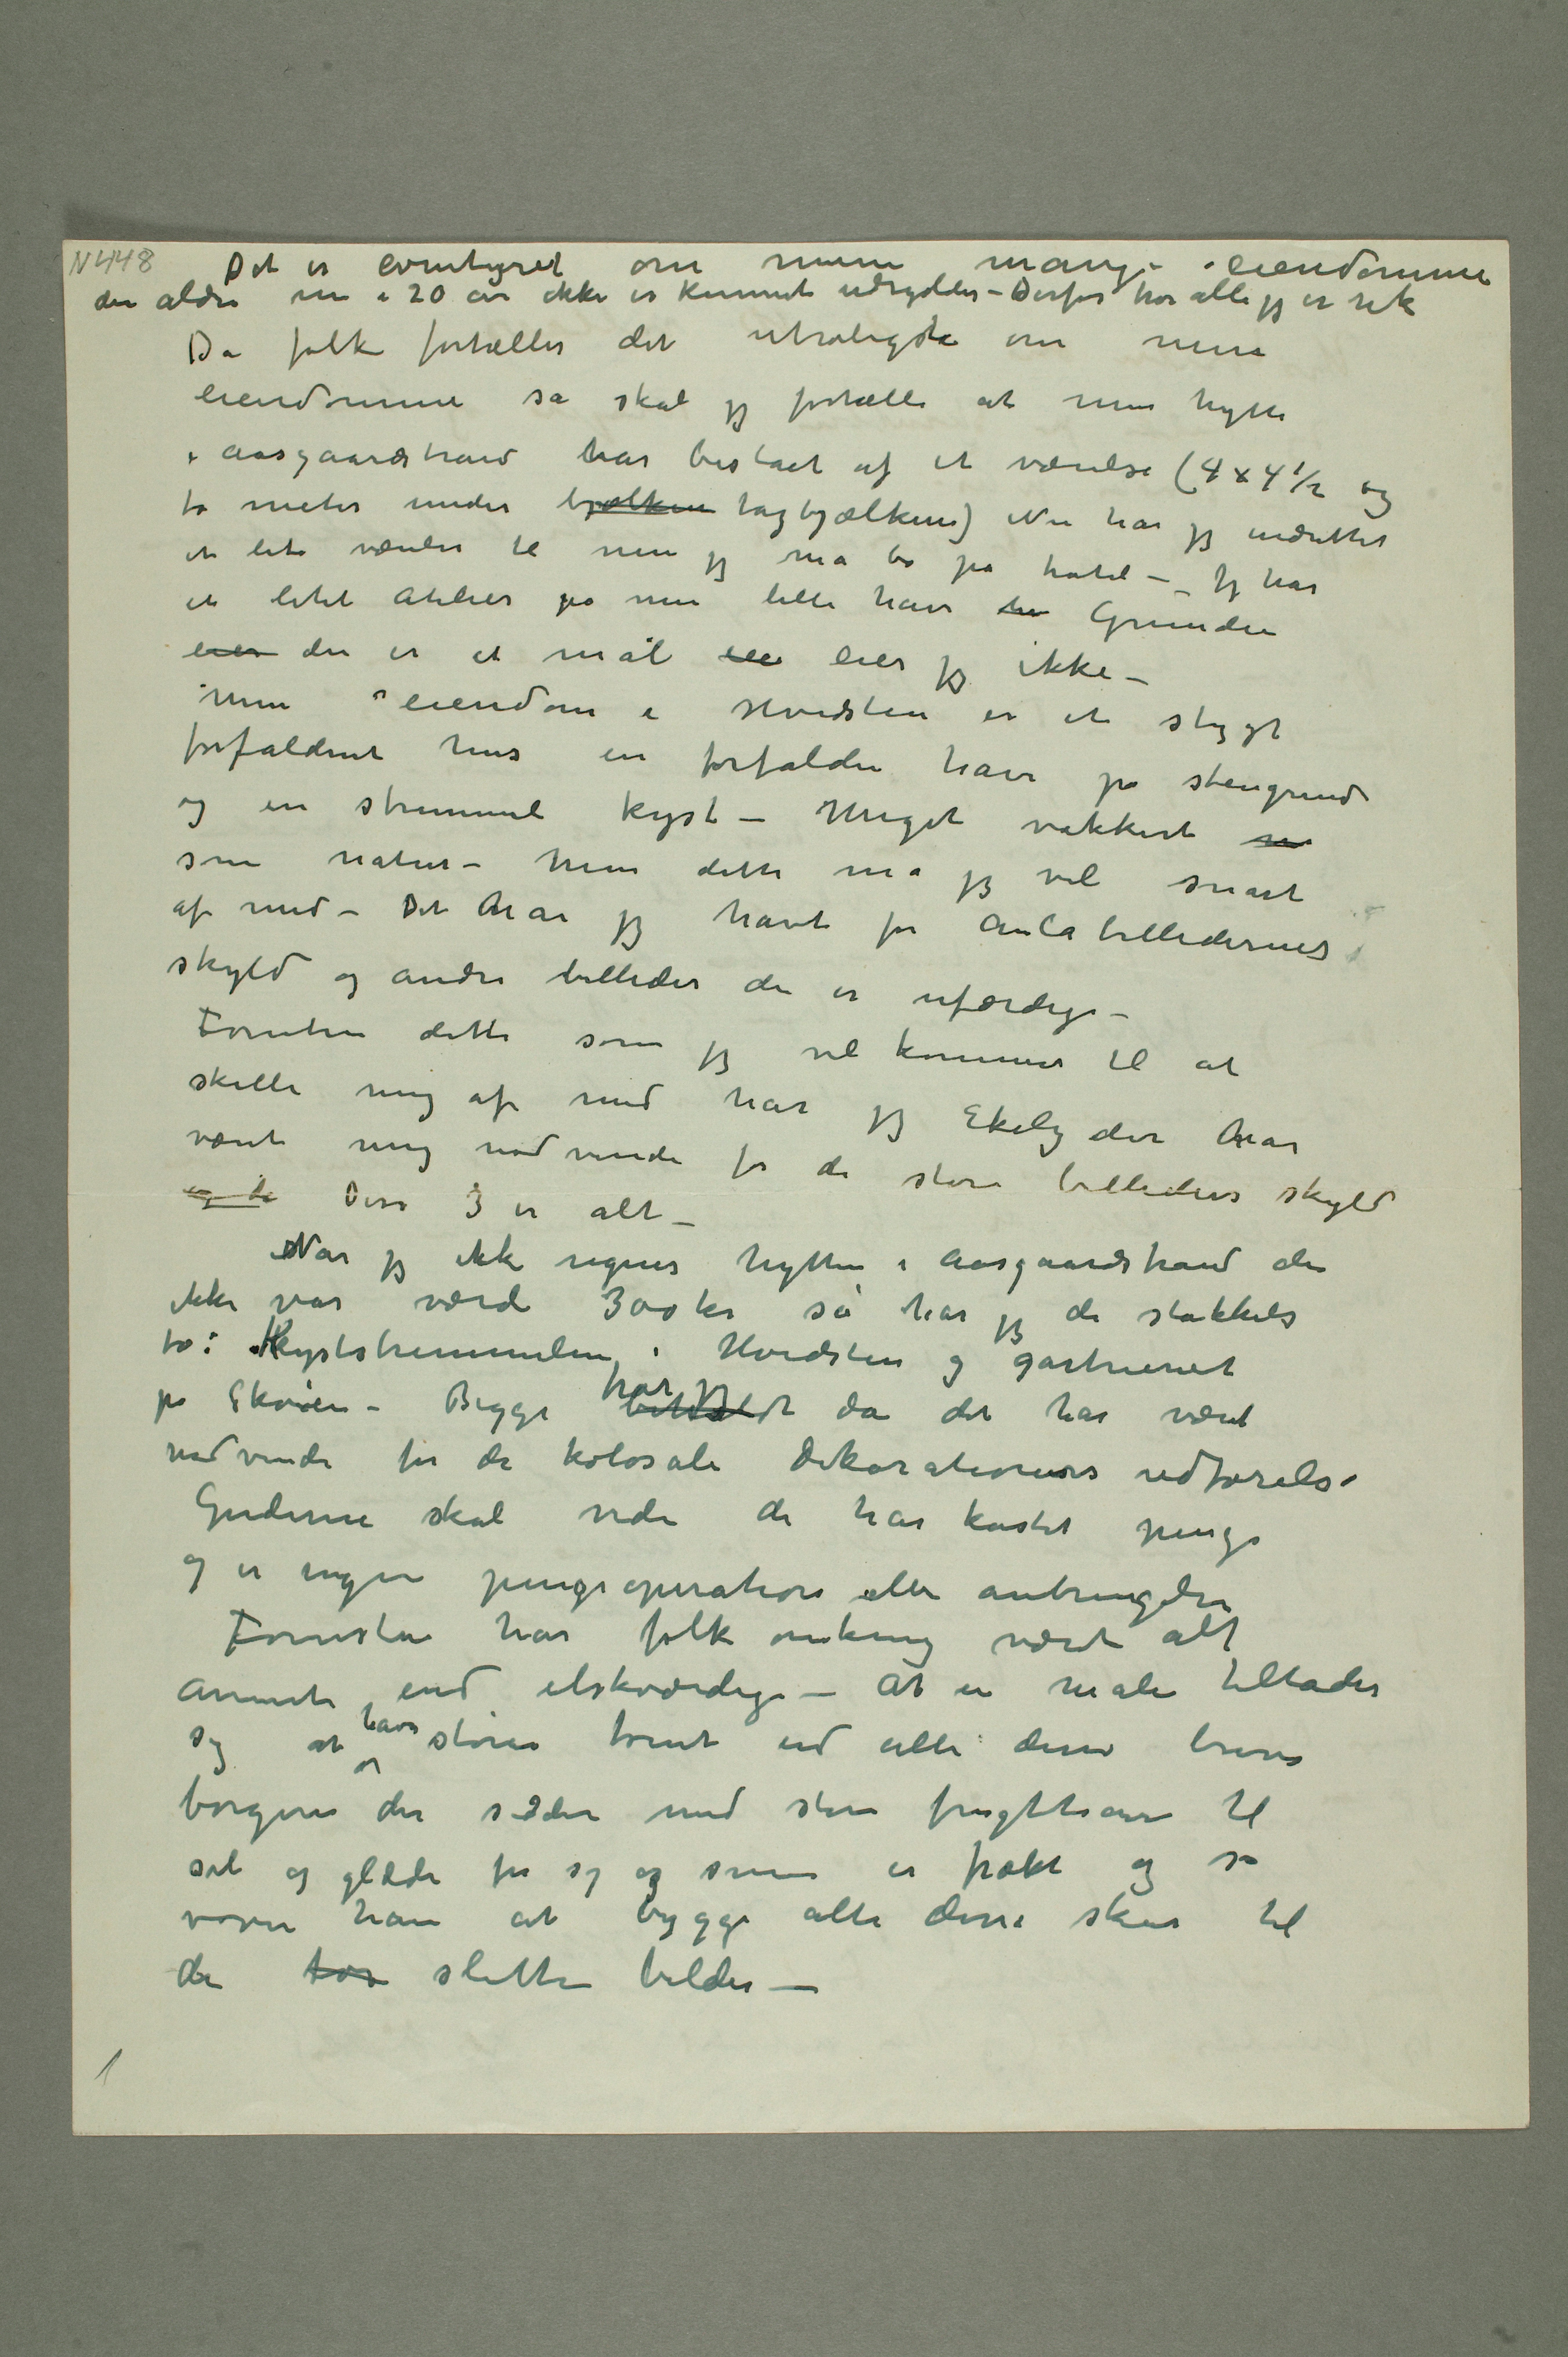 N 448
Det er eventyret om mine mange eiendomme
der aldri nu i 20 år ikke er kunnet udryddes – Derfor tror alle jeg er rik
Da folk fortæller det utroligste om mine
eiendomme så skal jeg fortælle at min hytte
i Aasgaardstrand har bestået af et værelse (4 x 4 1/2 og
to meter under bjælken tagbjælkerne) Nu har jeg indrettet
et lite værelse til men jeg må bo på hotel – Jeg har
et litet atelier på min lille have Grunden
eier der er et mål eier jeg ikke –
Min eiendom i Hvidsten er et stygt
forfaldent hus en forfalden have på stengrund
og en strimmel kyst – Meget vakkert
som natur – Men dette må jeg vel snart
af med – Det har jeg havt for Aulabilledernes
skyld og andre billeder der er ufærdige –
Foruten dette som jeg vel kommer til at
skille mig af med har jeg Ekely der har
været mig nødvendi for de store billeders skyld
og de Disse 3 er alt –
Når jeg ikke regner hytten i Aasgaardstrand der
ikke var værd 300 kr så har jeg de stakkels
to: Kyststrimmelen i Hvidsten og gartneriet
på Skøien – Begge har jeg beholdt da det har været
nødvendi for de kolosale dekorationers udførelse
Guderne skal vide de har kostet penge
og er ingen pengeoperation eller anbringelse
Foruten har folk omkring været alt
annet end elskværdige – At en maler tillader
sig at have en større tomt end alle disse brave
borgere der sidder med store frugthaver til
sol og glæde for sig og sine er frækt og så
vover han at bygge alle disse skur til
de slette bilder –
1